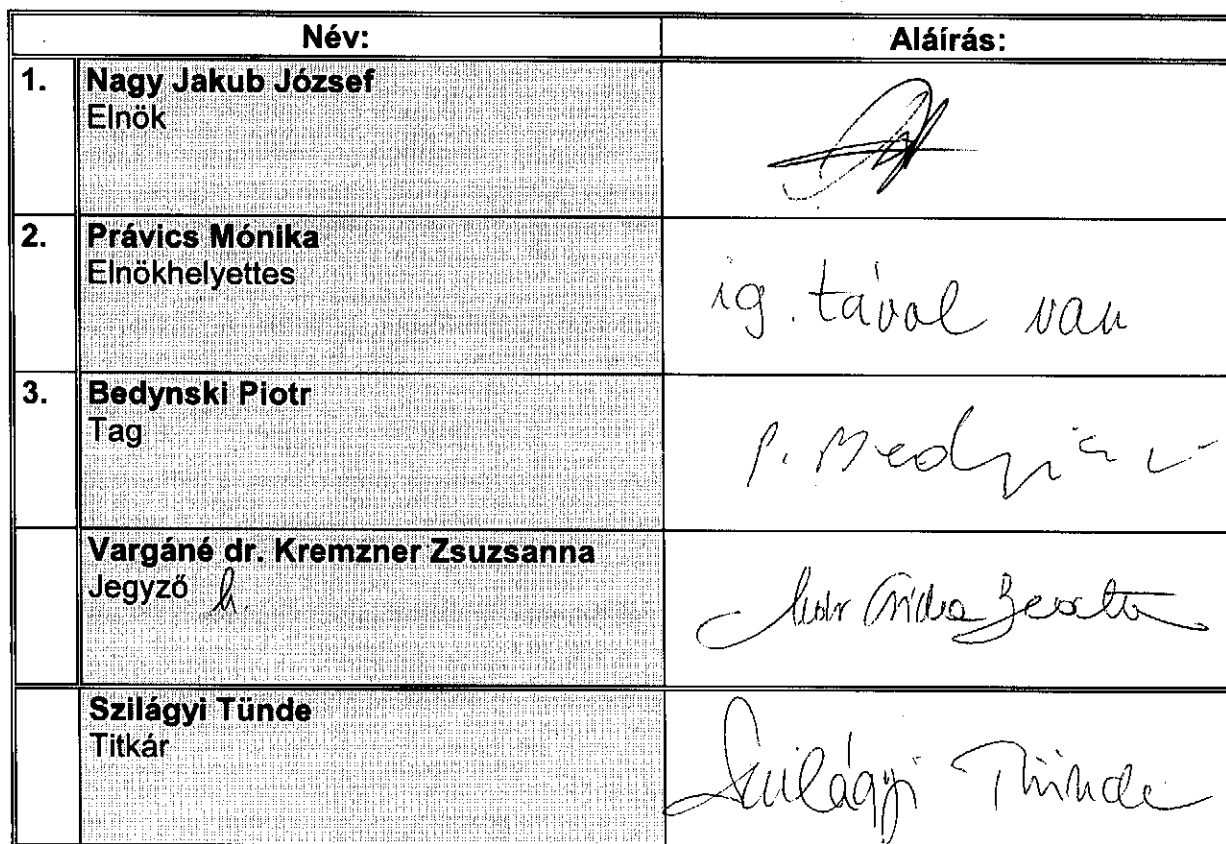 Név: Aláírás:
1. Nagy Jakub József
Elnök
2. Právics Mónika
Elnökhelyettes
ig. távol van
3. Bedynski Piotr
Tag
P.
Vargáné dr. Kremzner Zsuzsanna
Jegyző h.
Beata
Szilágyi Tünde
Titkár
Szilágyi Tünde